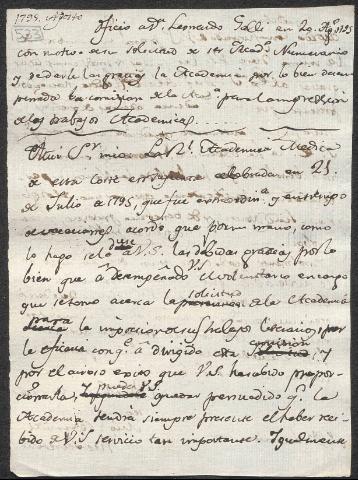 1795. Agosto
Oficio a Dn. Leonardo Galli en 20. Agto. 1795
con motivo de su solicitud de ser Acad.o Numerario
y se dar le las gracias la Academia por lo bien desem
peñado la comision de la Aca.a para la impresion
de los trabajos Academicos.
Mui Sr. mio. La Rl. Academia Medica
de esta Corte en Junta celebrada en 21
de Julio de 1795, que fue extraordin.a y en tiempo
de vacaciones acordo que por mi mano, como
lo hago se le diese a V.S. las debidas gracias por lo
bien que a desempeñado el voluntario encargo
que tomo acerca la solicitud de la Academia
para la impresion de sus trabajos literarios, por
la eficacia con q.e a dirigido esta comision, y
por el airoso exito que V.S. ha sabido propor-
cionarla, y puede V.S. quedar persuadido q.e la
Academia tendrá siempre presente el haber reci-
bido de V.S. servicio tan importante. Igualmente